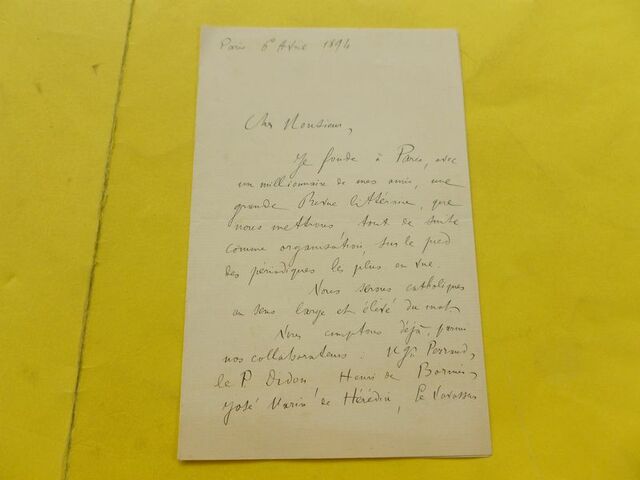 Paris 6 Avril 1894
Cher Monsieur,
Je fonde à Paris, avec
un millionnaire de mes amis, une
grande Revue littéraire, que
nous mettrons tout de suite
comme organisation, sur le pied
des périodiques les plus en vue.
Nous serons catholiques
au sens large et élevé du mot.
Nous comptons déjà, parmi
nos collaborateurs. Mgr Perraud,
le P. Didon, Henri de Bornier,
José Maria de Hérédia, Le Vavasseur